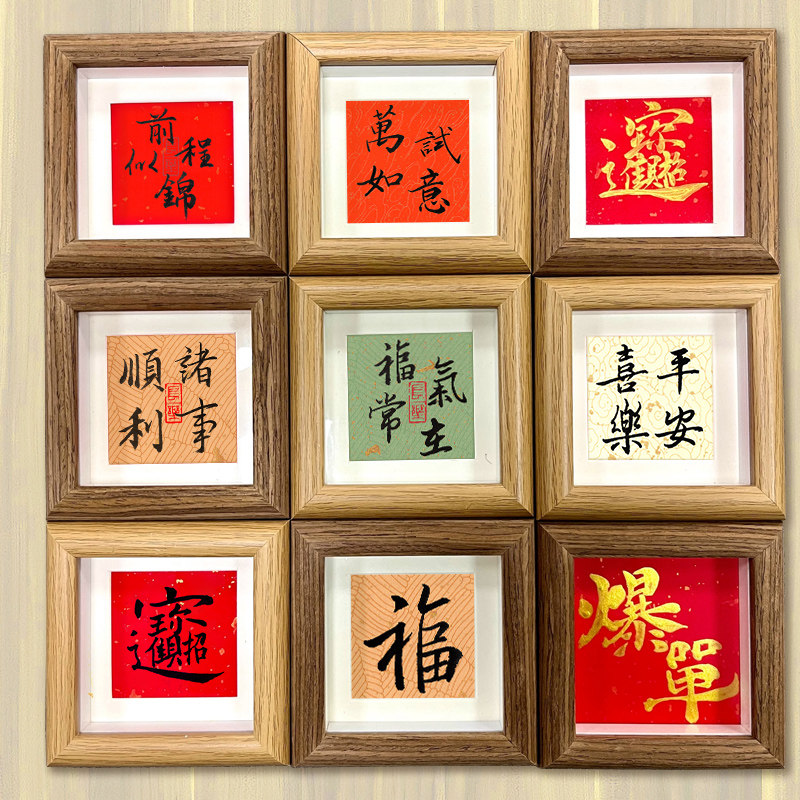 前程似錦
萬試如意
招財進寶
諸事順利
福氣常在
平安喜樂
招財進寶
福
爆單